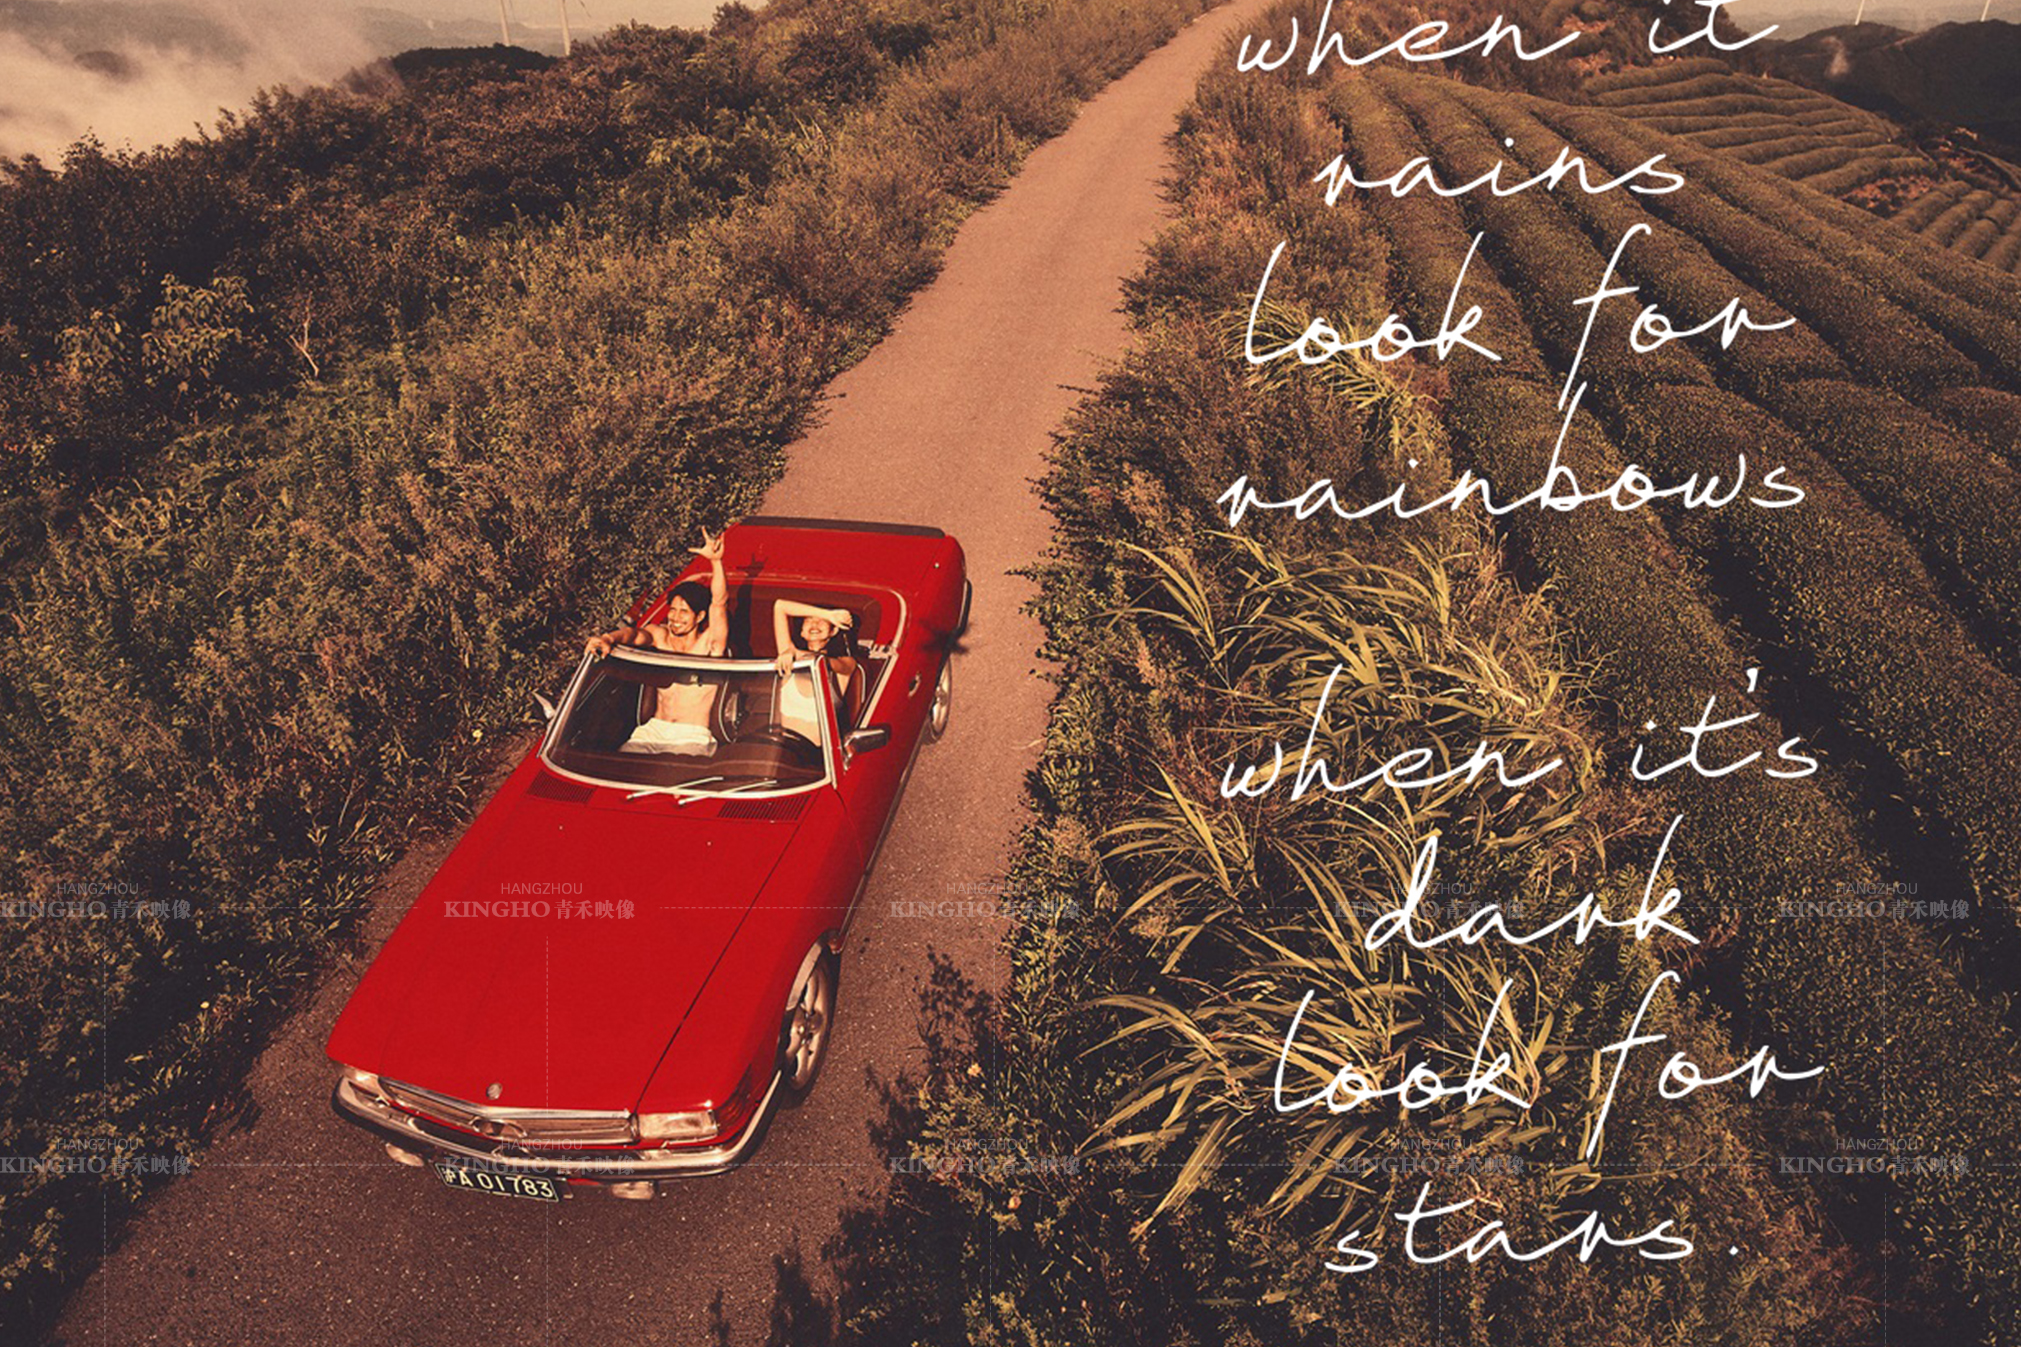 when it
rains
look for
rainbows
when it's
dark
look for
stars.
沪A 01783
HANGZHOU HANGZHOU HANGZHOU HANGZHOU HANGZHOU
KINGHO 青禾映像 KINGHO 青禾映像 KINGHO 青禾映像 KINGHO 青禾映像 KINGHO 青禾映像
HANGZHOU HANGZHOU HANGZHOU HANGZHOU HANGZHOU
KINGHO 青禾映像 KINGHO 青禾映像 KINGHO 青禾映像 KINGHO 青禾映像 KINGHO 青禾映像